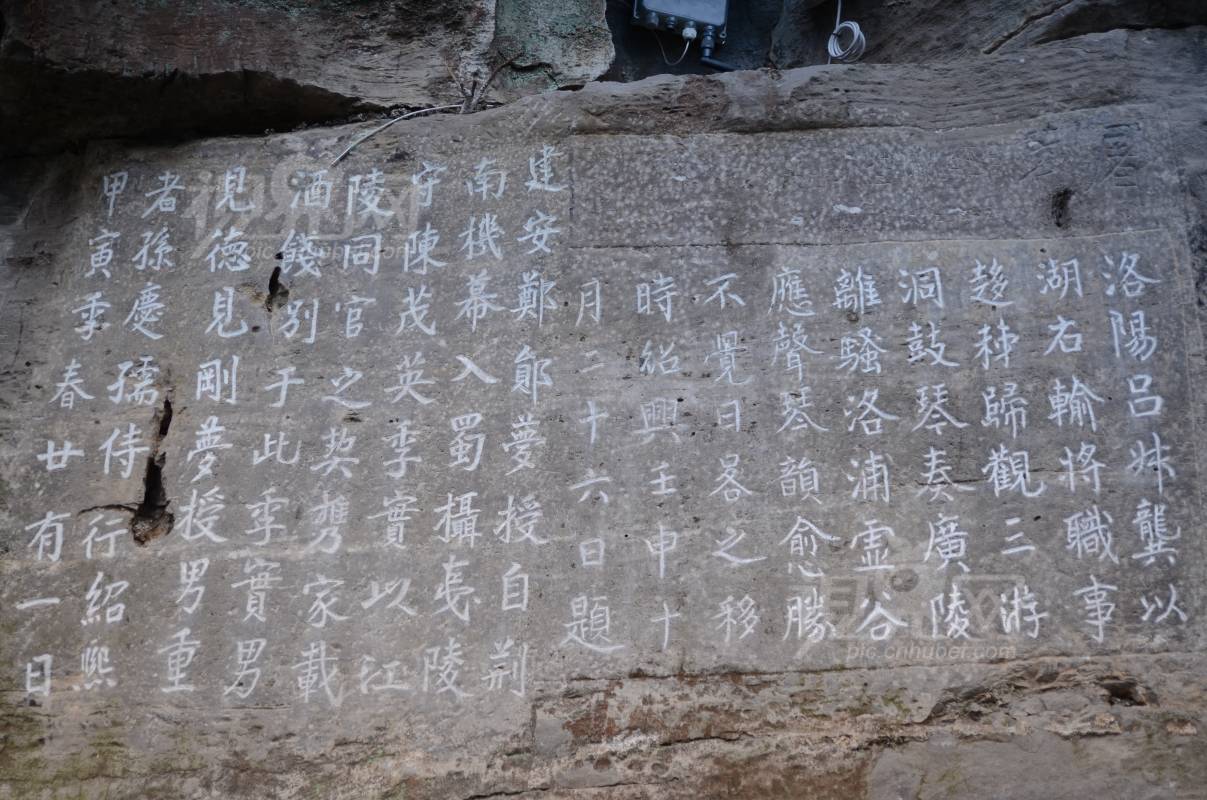 洛陽呂叔龔以
湖右輸將職事
趍秭歸觀三游
洞鼓琴奏廣陵
離騷洛浦霊谷
應聲琴韻愈勝
不覺日晷之移
時紹興壬申十
月二十六日題
建安鄭鄖夢授自荆
南機幕入蜀攝夷陵
守陳茂英季實以江
陵同官之契携家載
酒餞別于此季實男
見德見剛夢授男重
者孫慶孺侍行紹熙
甲寅季春廿有一日
pic.cnhuber.com
pic.cnhuber.com